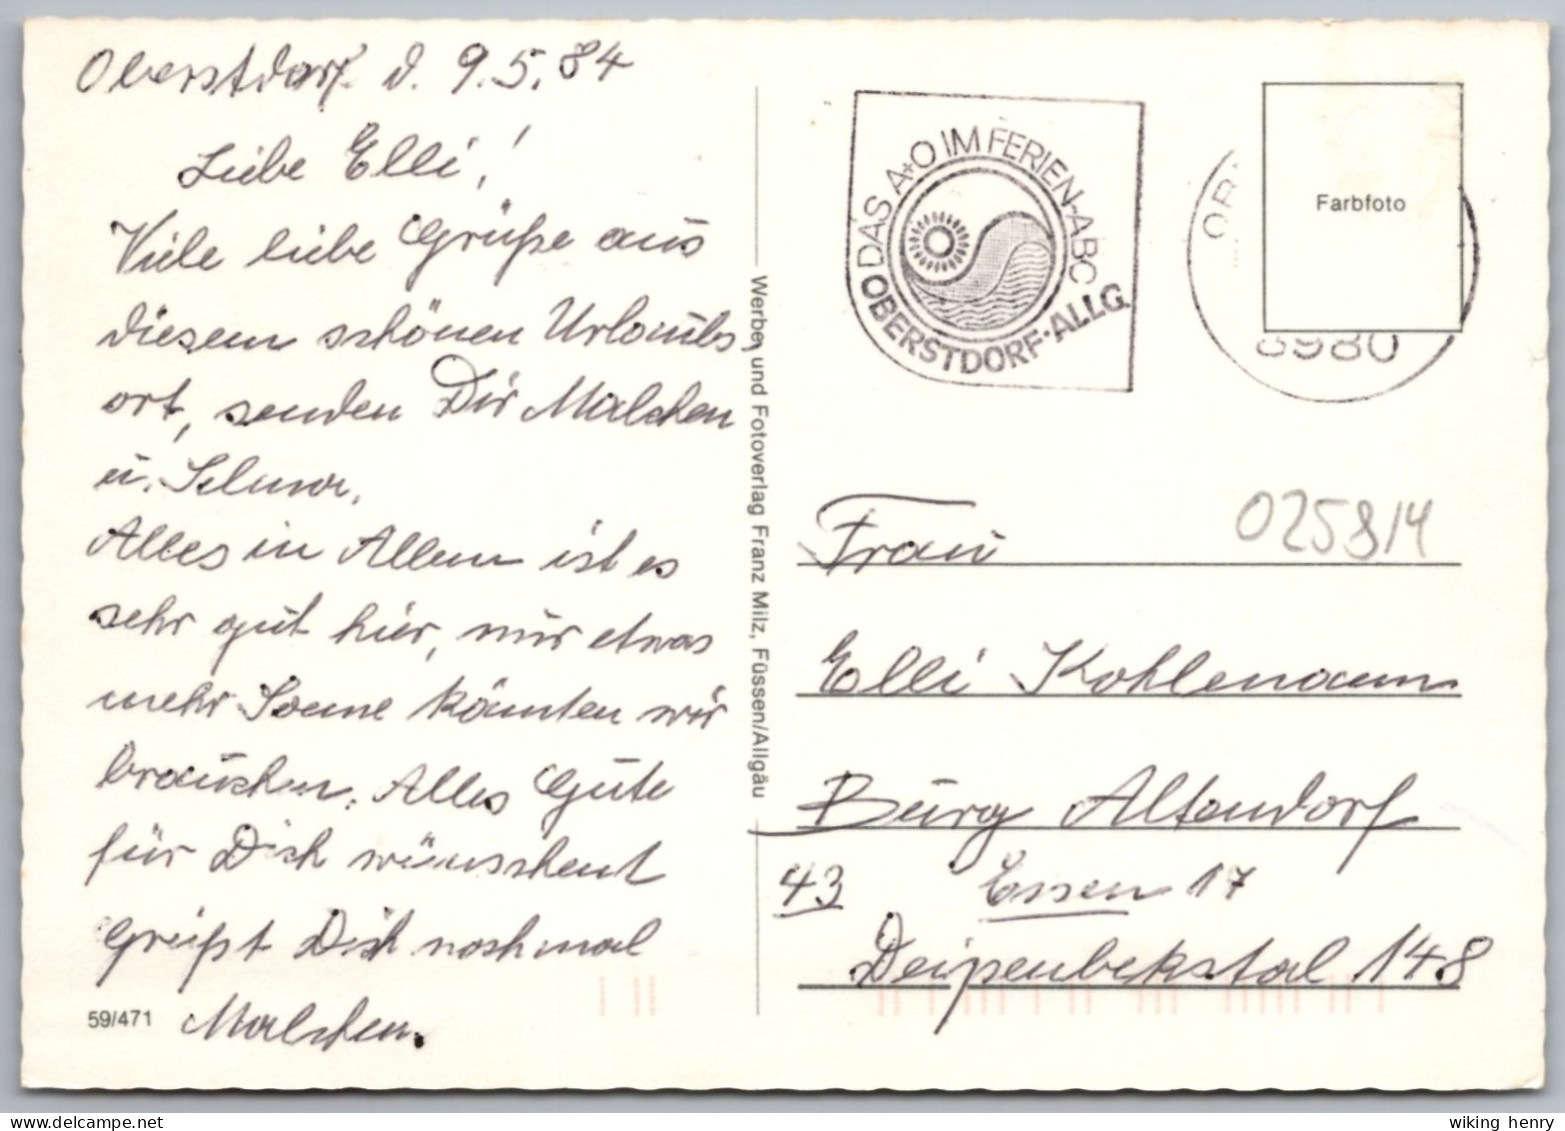 Oberstdorf d. 9.5.84
Liebe Elli!
Viele liebe Grüße aus
diesem schönen Urlaubs,
ort, senden Dir Malchen
u. Selma.
Alles in Allem ist es
sehr gut hier, nur etwas
mehr Sonne könnten wir
brauchen. Alles Gute
für Dich wünschent
grüßt Dich nochmal
Malchen.
59/471
Werbe- und Fotoverlag Franz Milz, Füssen/Allgäu
DAS A+O IM FERIEN-ABC
OBERSTDORF·ALLG.
8980
Farbfoto
0258/4
Frau
Elli Kohlemann
Burg Altendorf
43 Essen 17
Deipenbekstal 148
delcampe.net
wiking henry